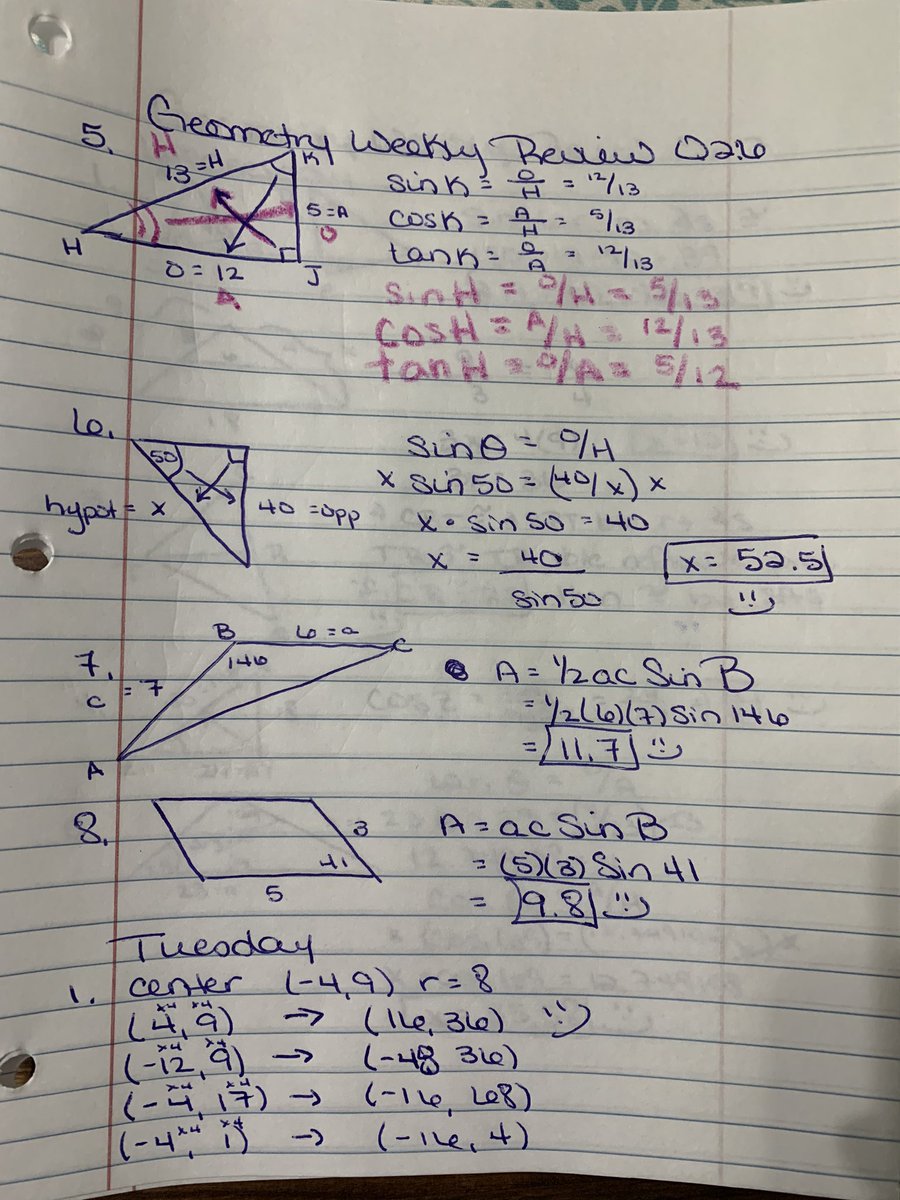 Geometry Weekly Review Q2.6
5.
H
13 = H
K
5 = A
O
H
O = 12
J
A
sin K = O/H = 12/13
cos K = A/H = 5/13
tan K = O/A = 12/13
sin H = O/H = 5/13
cos H = A/H = 12/13
tan H = O/A = 5/12
6.
50
hypot = x
40 = opp
sin θ = O/H
x sin 50 = (40/x) x
x • sin 50 = 40
x = 40
sin 50
x = 52.5
7.
B
6 = a
C
146
c = 7
A
A = 1/2 ac Sin B
= 1/2 (6)(7) Sin 146
= 11.7
8.
3
41
5
A = ac Sin B
= (5)(3) Sin 41
= 9.8
Tuesday
1. center (-4, 9) r = 8
x4 x4
(4, 9) → (16, 36)
x4 x4
(-12, 9) → (-48 36)
x4 x4
(-4, 17) → (-16, 68)
x4 x4
(-4, 1) → (-16, 4)